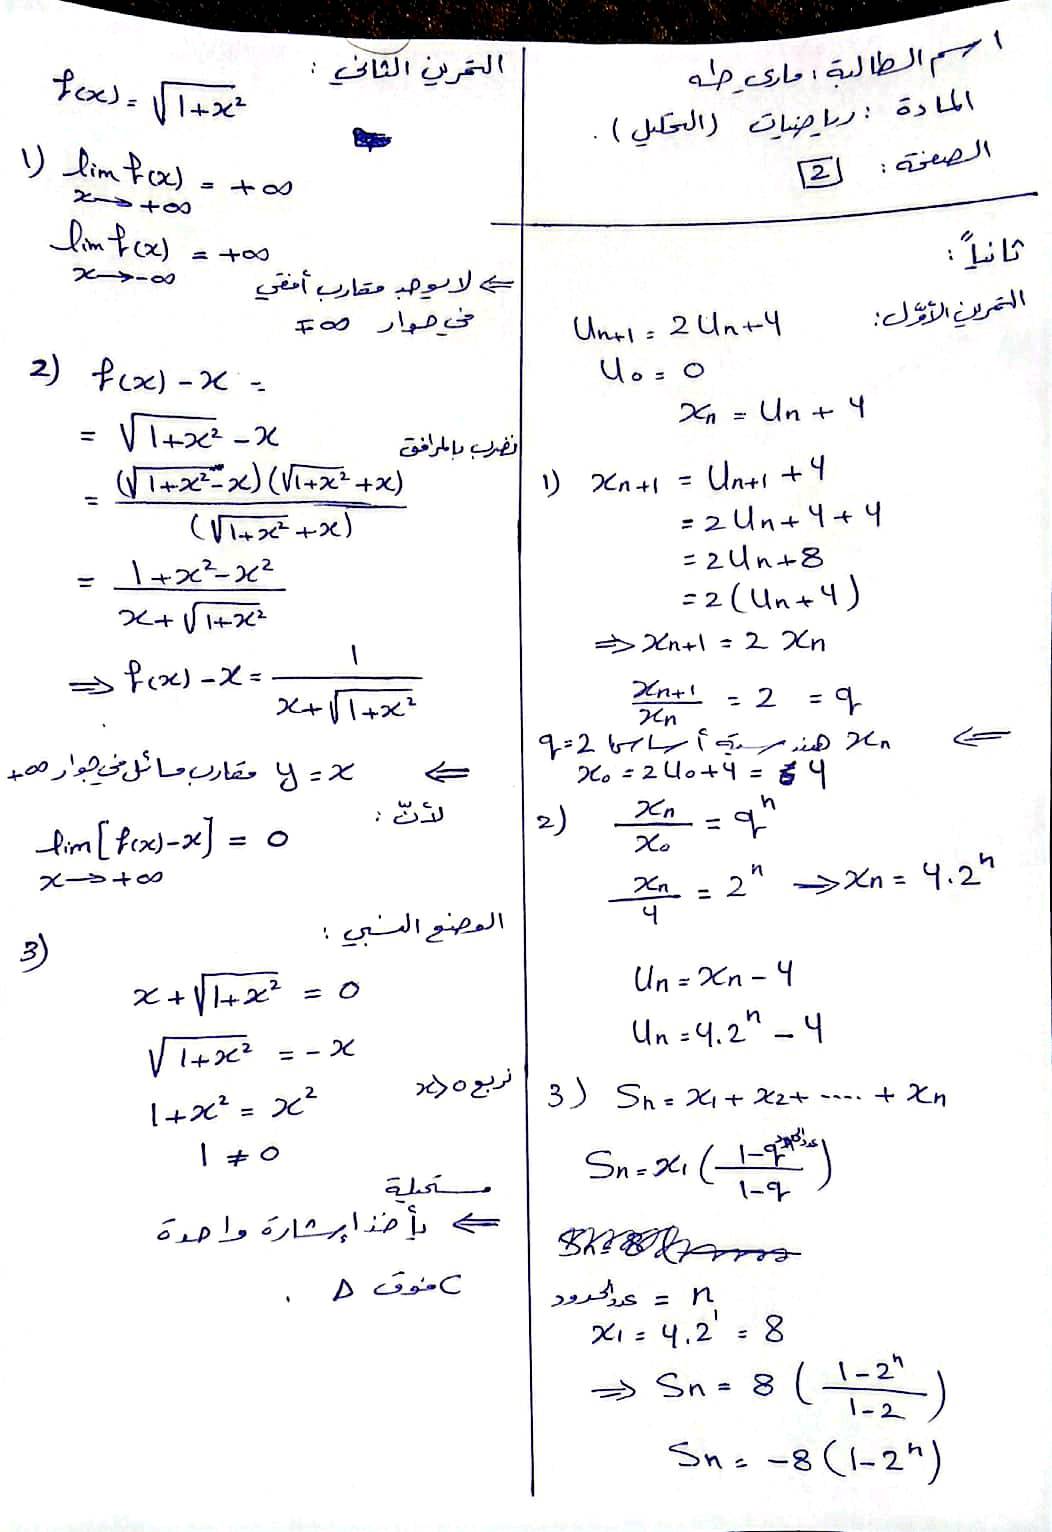 اسم الطالبة: ماري طه
المادة: رياضيات (التحليل).
الصفحة: 2
ثانياً:
التمرين الأوّل:
Un+1 = 2Un+4
U0 = 0
xn = Un + 4
1) xn+1 = Un+1 + 4
= 2Un + 4 + 4
= 2Un + 8
= 2(Un + 4)
⇒ xn+1 = 2 xn
xn+1/xn = 2 = q
⇐ xn هندسية أساسها q=2
x0 = 2U0+4 = 4
2) xn/x0 = q^n
xn/4 = 2^n ⇒ xn = 4.2^n
Un = xn - 4
Un = 4.2^n - 4
3) Sn = x1 + x2 + .... + xn
Sn = x1 ( (1-q^عدد الحدود)/(1-q) )
عدد الحدود = n
x1 = 4.2^1 = 8
⇒ Sn = 8 ( (1-2^n)/(1-2) )
Sn = -8 (1-2^n)
التمرين الثاني:
f(x) = √(1+x²)
1) lim f(x) = +∞
x→+∞
lim f(x) = +∞
x→-∞
⇐ لا يوجد مقارب أفقي
في جوار ∓∞
2) f(x) - x =
= √(1+x²) - x نضرب بالمرافق
= (√(1+x²) - x)(√(1+x²) + x)/(√(1+x²) + x)
= (1+x²-x²)/(x+√(1+x²))
⇒ f(x) - x = 1/(x+√(1+x²))
⇐ y = x مقارب مائل في جوار +∞
لأنّ:
lim [f(x)-x] = 0
x→+∞
3) الوضع النسبي:
x + √(1+x²) = 0
√(1+x²) = -x
نربع x>0
1+x² = x²
1 ≠ 0
مستحيلة
⇐ يأخذ إشارة واحدة
C فوق Δ.